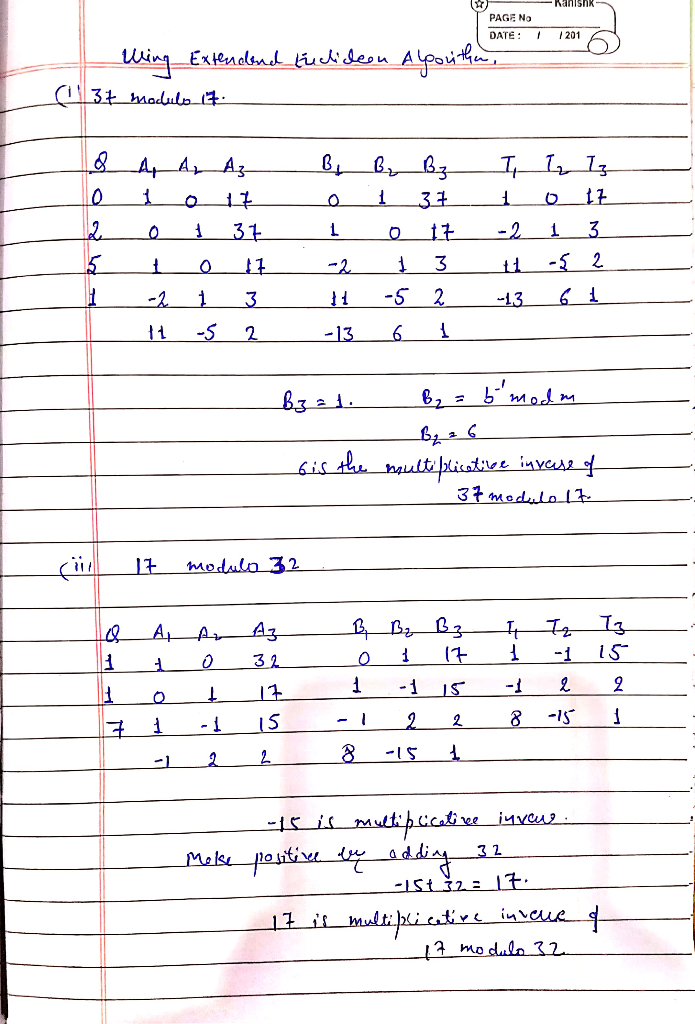 Kanishk
PAGE No
DATE: / / 201 6
Using Extendend Euclidean Algorithm.
(i) 37 modulo 17.
Q A1 A2 A3 B1 B2 B3 T1 T2 T3
0 1 0 17 0 1 37 1 0 17
2 0 1 37 1 0 17 -2 1 3
5 1 0 17 -2 1 3 11 -5 2
1 -2 1 3 11 -5 2 -13 6 1
11 -5 2 -13 6 1
B3 = 1. B2 = b⁻¹ mod m
B2 = 6
6 is the multiplicative inverse of
37 modulo 17.
(ii) 17 modulo 32
Q A1 A2 A3 B1 B2 B3 T1 T2 T3
1 1 0 32 0 1 17 1 -1 15
1 0 1 17 1 -1 15 -1 2 2
7 1 -1 15 -1 2 2 8 -15 1
-1 2 2 8 -15 1
-15 is multiplicative inverse.
Make positive by adding 32
-15+32 = 17.
17 is multiplicative inverse of
17 modulo 32